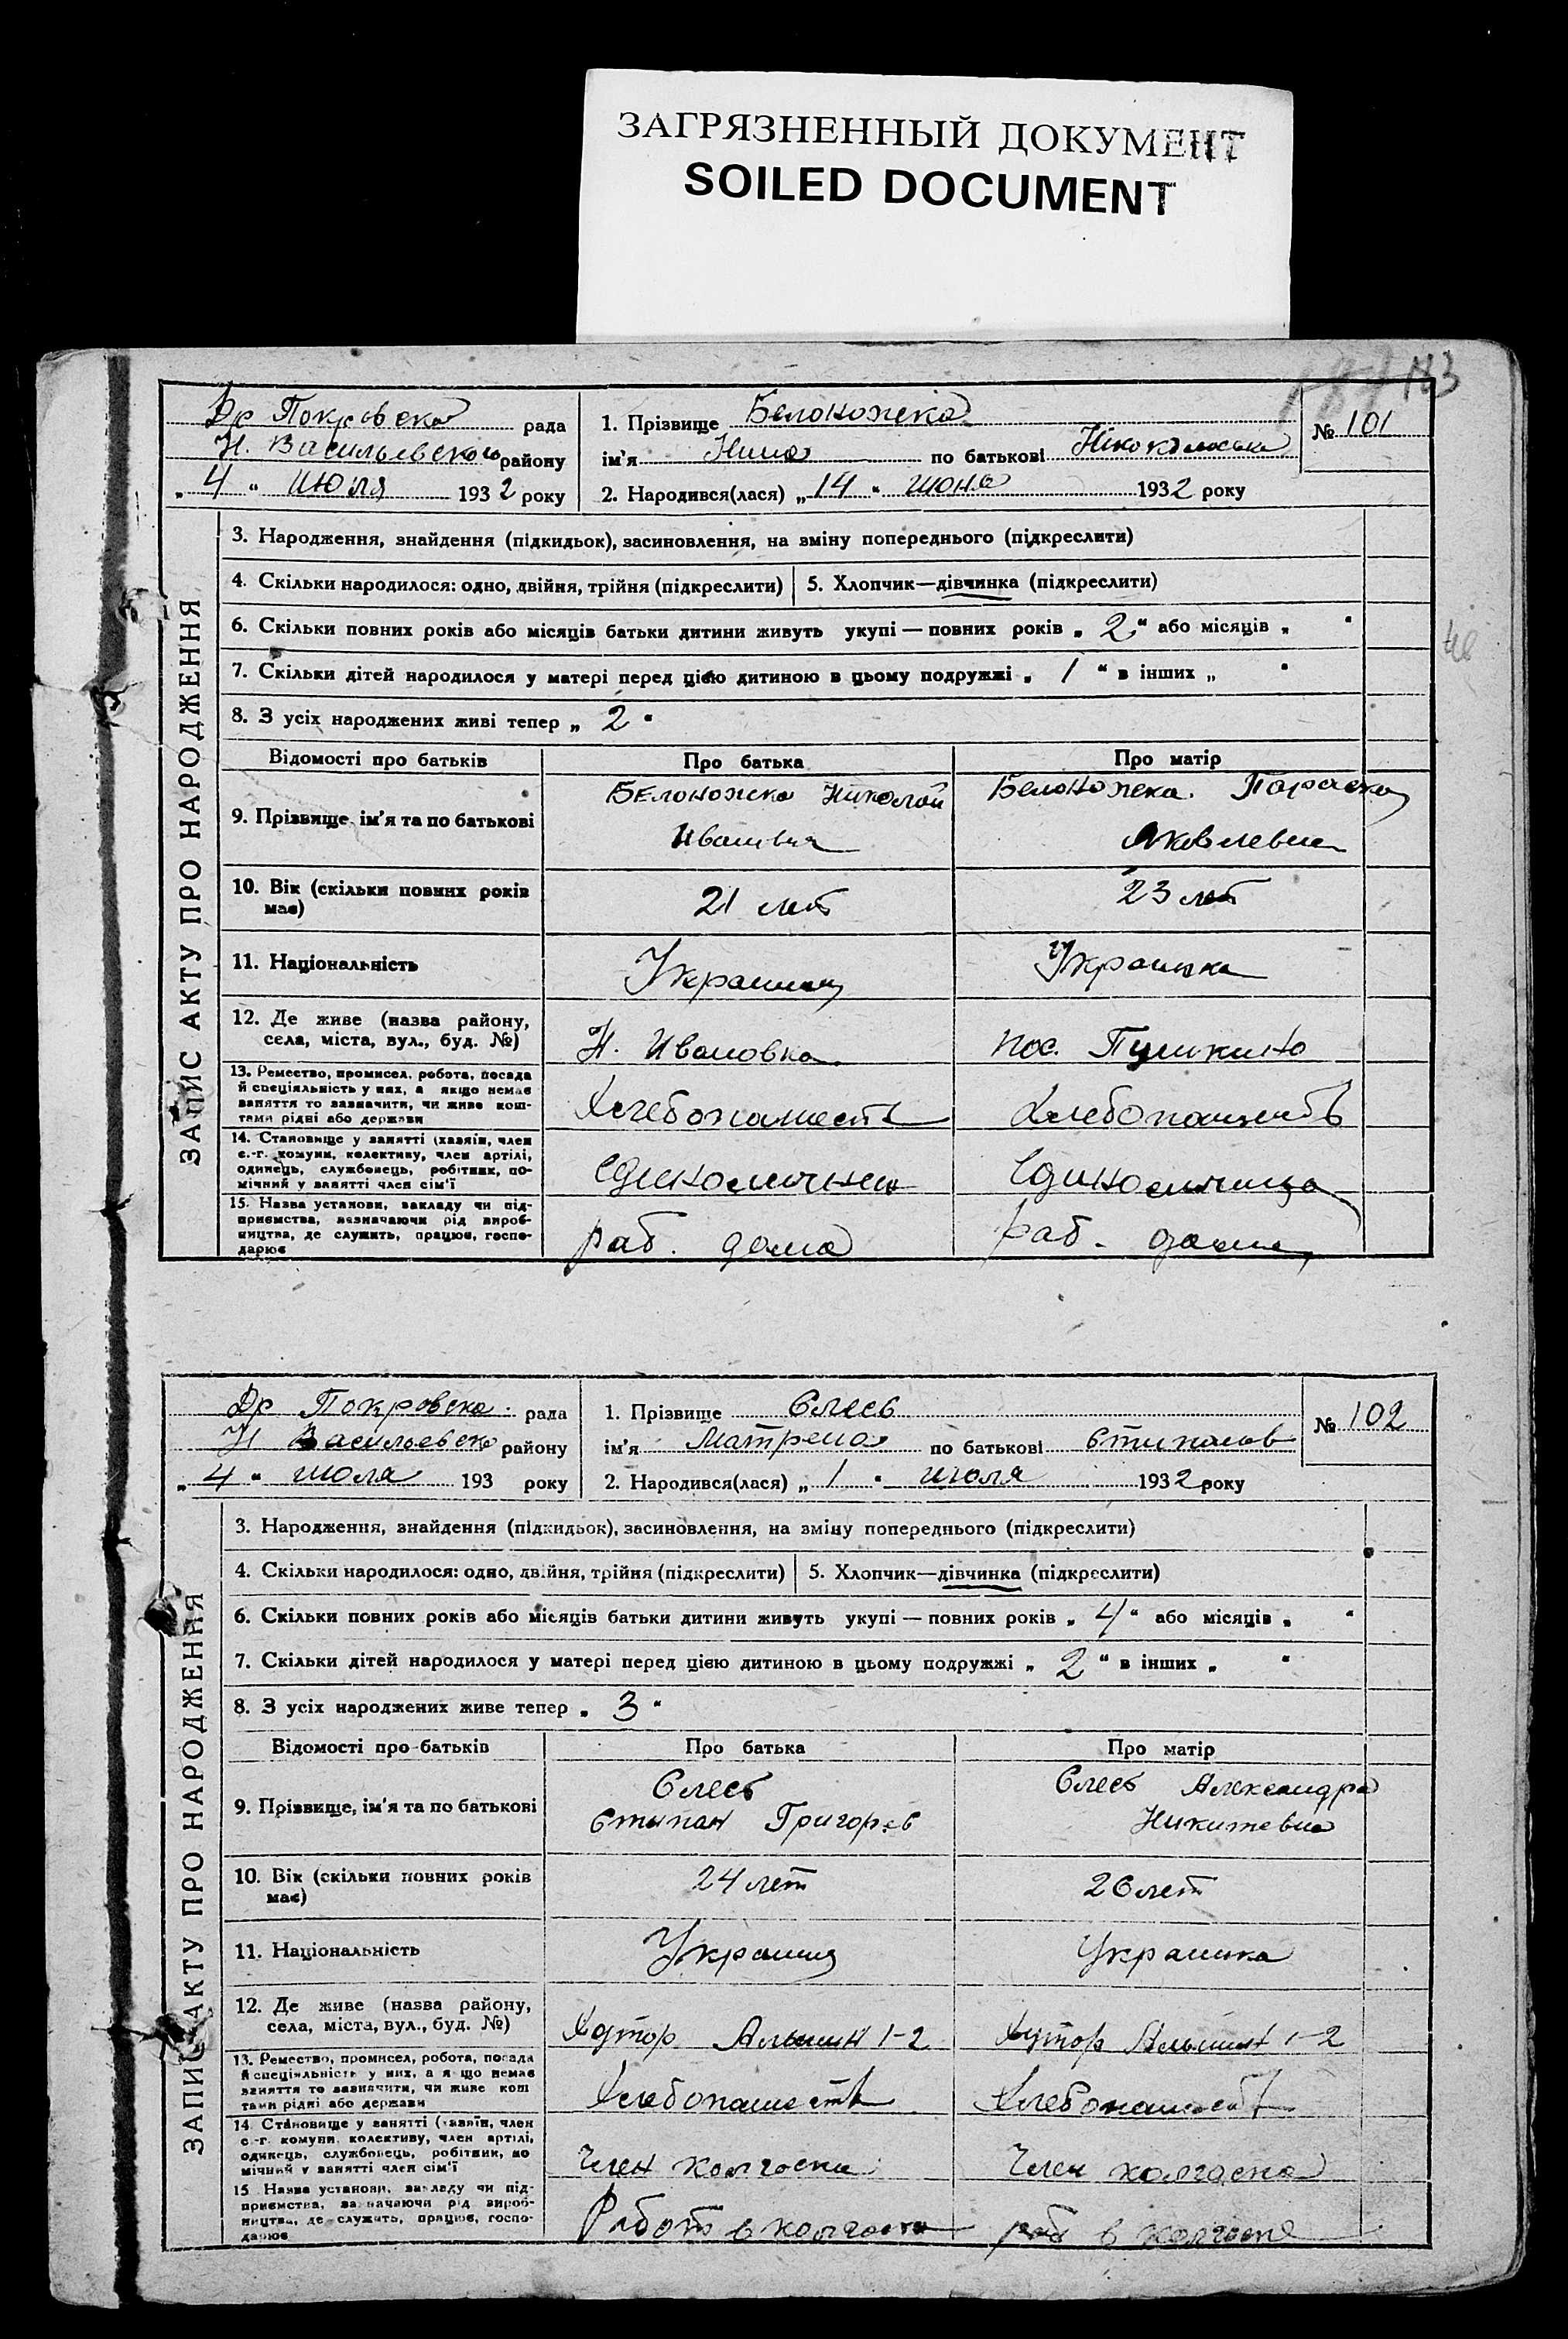 ЗАГРЯЗНЕННЫЙ ДОКУМЕНТ
SOILED DOCUMENT
183
Др Покровска рада
Н. Васильевского району
„4“ июля 1932 року
1. Прізвище Белоножека
ім'я Нина по батькові
№ 101
2. Народився(лася) „14“ июня 1932 року
ЗАПИС АКТУ ПРО НАРОДЖЕННЯ
3. Народження, знайдення (підкидьок), засиновлення, на зміну попереднього (підкреслити)
4. Скільки народилося: одно, двійня, трійня (підкреслити) 5. Хлопчик—дівчинка (підкреслити)
6. Скільки повних років або місяців батьки дитини живуть укупі — повних років „2“ або місяців „ “
7. Скільки дітей народилося у матері перед цією дитиною в цьому подружжі „1“ в інших „ “
8. З усіх народжених живі тепер „2“
Відомості про батьків Про батька Про матір
9. Прізвище, ім'я та по батькові
Белоножека Николай
Иванивич
Белоножека Параска
Яковлевна
10. Вік (скільки повних років має) 21 лет 23 лет
11. Національність Украинец Украинка
12. Де живе (назва району, села, міста, вул., буд. №) Н. Ивановка пос. Пушкино
13. Ремество, промисел, робота, посада й спеціяльність у них, а якщо немає заняття то зазначити, чи живе коштами рідні або держави
Хлебопашеств Хлебопашеств
14. Становище у занятті (хазяїн, член с.-г. комуни, колективу, член артілі, одинець, службовець, робітник, помічний у занятті член сім'ї
Единоличник Единоличница
15. Назва установи, закладу чи підприємства, зазначаючи рід виробництва, де служить, працює, господарює
раб. дома раб. дома
Др Покровска рада
Н Васильевско району
„4“ июля 193 року
1. Прізвище Слесь
ім'я Матрена по батькові Стипанов
№ 102
2. Народився(лася) „1“ июля 1932 року
ЗАПИС АКТУ ПРО НАРОДЖЕННЯ
3. Народження, знайдення (підкидьок), засиновлення, на зміну попереднього (підкреслити)
4. Скільки народилося: одно, двійня, трійня (підкреслити) 5. Хлопчик—дівчинка (підкреслити)
6. Скільки повних років або місяців батьки дитини живуть укупі — повних років „4“ або місяців „ “
7. Скільки дітей народилося у матері перед цією дитиною в цьому подружжі „2“ в інших „ “
8. З усіх народжених живе тепер „3“
Відомості про батьків Про батька Про матір
9. Прізвище, ім'я та по батькові
Слесь
Стипан Григорев
Слесь Александра
Никитевна
10. Вік (скільки повних років має) 24 лет 26 лет
11. Національність Украинец Украинка
12. Де живе (назва району, села, міста, вул., буд. №) Хутор 1-2 Хутор 1-2
13. Ремество, промисел, робота, посада й спеціяльність у них, а якщо немає заняття то зазначити, чи живе коштами рідні або держави
Хлебопашеств Хлебопашеств
14. Становище у занятті (хазяїн, член с.-г. комуни, колективу, член артілі, одинець, службовець, робітник, помічний у занятті член сім'ї
Член колгоспа Член колгоспа
15. Назва установи, закладу чи підприємства, зазначаючи рід виробництва, де служить, працює, господарює
Работ в колгоспе раб в колгоспе